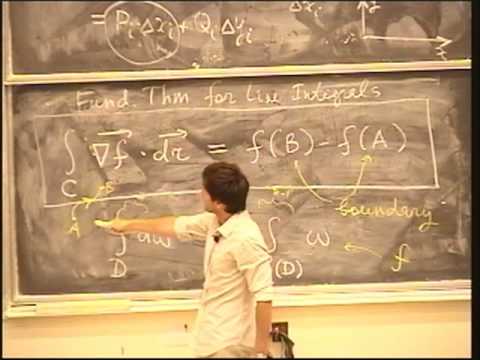 = P_i Δx_i + Q_i Δy_i
Δx_i
y
x
Fund. Thm for Line Integrals
∫_C ∇f · dr = f(B) - f(A)
A B
boundary
∫_D dω
∫ ω
(D)
f